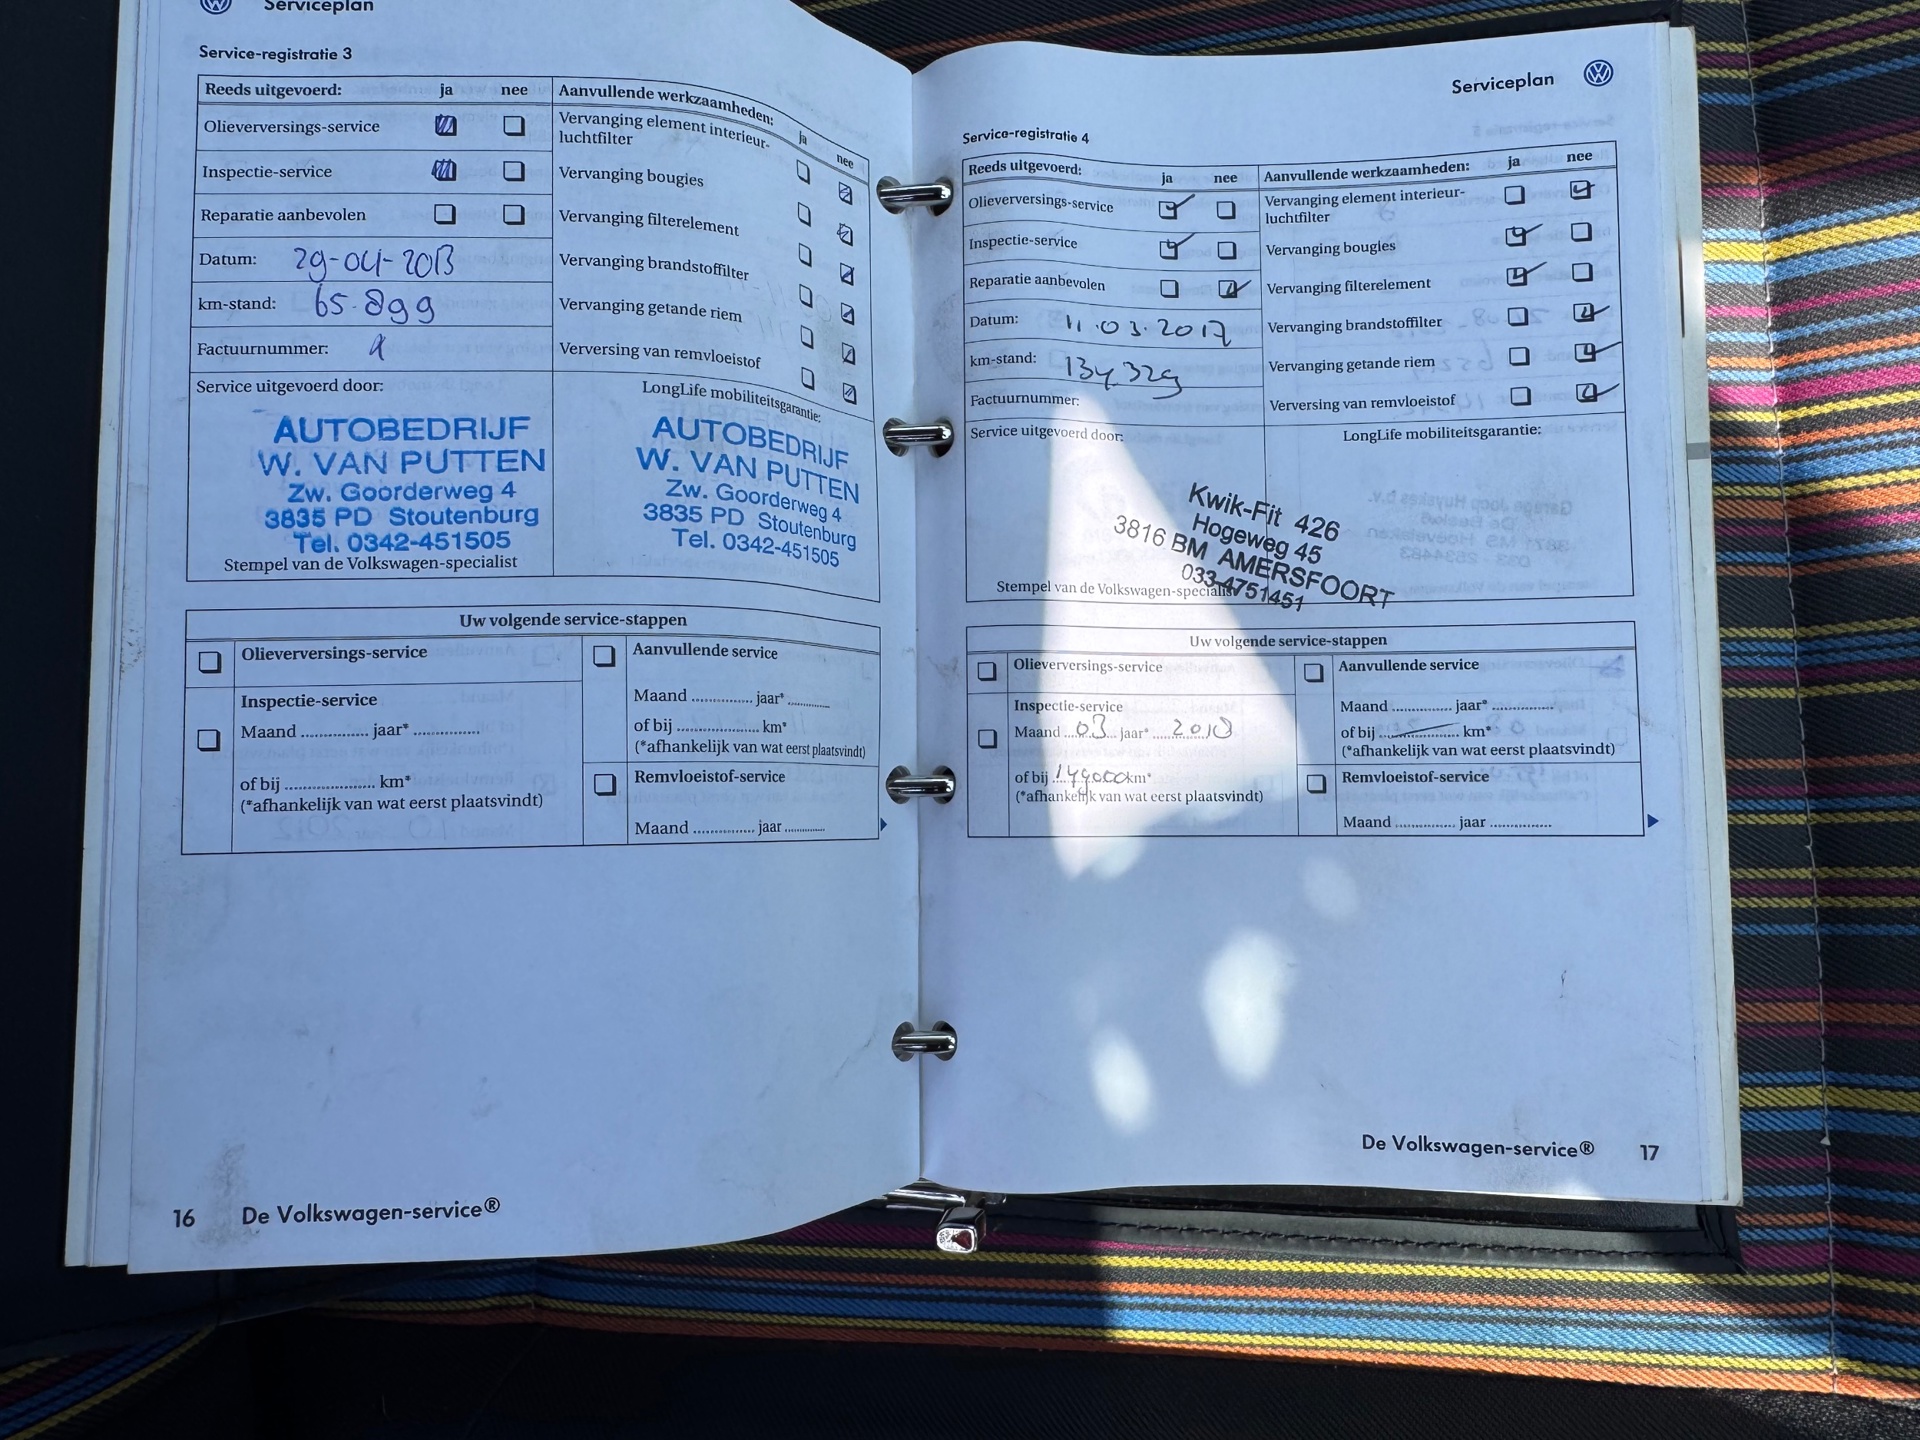 Serviceplan
Service-registratie 3
Reeds uitgevoerd: ja nee
Olieverversings-service
Inspectie-service
Reparatie aanbevolen
Datum: 29-04-2013
km-stand: 65.899
Factuurnummer:
Aanvullende werkzaamheden: ja nee
Vervanging element interieur-
luchtfilter
Vervanging bougies
Vervanging filterelement
Vervanging brandstoffilter
Vervanging getande riem
Verversing van remvloeistof
Service uitgevoerd door:
AUTOBEDRIJF
W. VAN PUTTEN
Zw. Goorderweg 4
3835 PD Stoutenburg
Tel. 0342-451505
Stempel van de Volkswagen-specialist
LongLife mobiliteitsgarantie:
AUTOBEDRIJF
W. VAN PUTTEN
Zw. Goorderweg 4
3835 PD Stoutenburg
Tel. 0342-451505
Uw volgende service-stappen
Olieverversings-service
Inspectie-service
Maand .............. jaar* ..............
of bij .................. km*
(*afhankelijk van wat eerst plaatsvindt)
Aanvullende service
Maand ............ jaar* .........
of bij ................ km*
(*afhankelijk van wat eerst plaatsvindt)
Remvloeistof-service
Maand ............ jaar .........
16 De Volkswagen-service®
Serviceplan
Service-registratie 4
Reeds uitgevoerd: ja nee
Olieverversings-service
Inspectie-service
Reparatie aanbevolen
Datum: 11.03.2017
km-stand: 134329
Factuurnummer:
Aanvullende werkzaamheden: ja nee
Vervanging element interieur-
luchtfilter
Vervanging bougies
Vervanging filterelement
Vervanging brandstoffilter
Vervanging getande riem
Verversing van remvloeistof
Service uitgevoerd door:
LongLife mobiliteitsgarantie:
Kwik-Fit 426
Hogeweg 45
3816 BM AMERSFOORT
033-4751451
Stempel van de Volkswagen-specialist
Uw volgende service-stappen
Olieverversings-service
Inspectie-service
Maand 03 jaar* 2018
of bij 149000 km*
(*afhankelijk van wat eerst plaatsvindt)
Aanvullende service
Maand ............ jaar* ............
of bij ................ km*
(*afhankelijk van wat eerst plaatsvindt)
Remvloeistof-service
Maand ............ jaar ............
De Volkswagen-service® 17